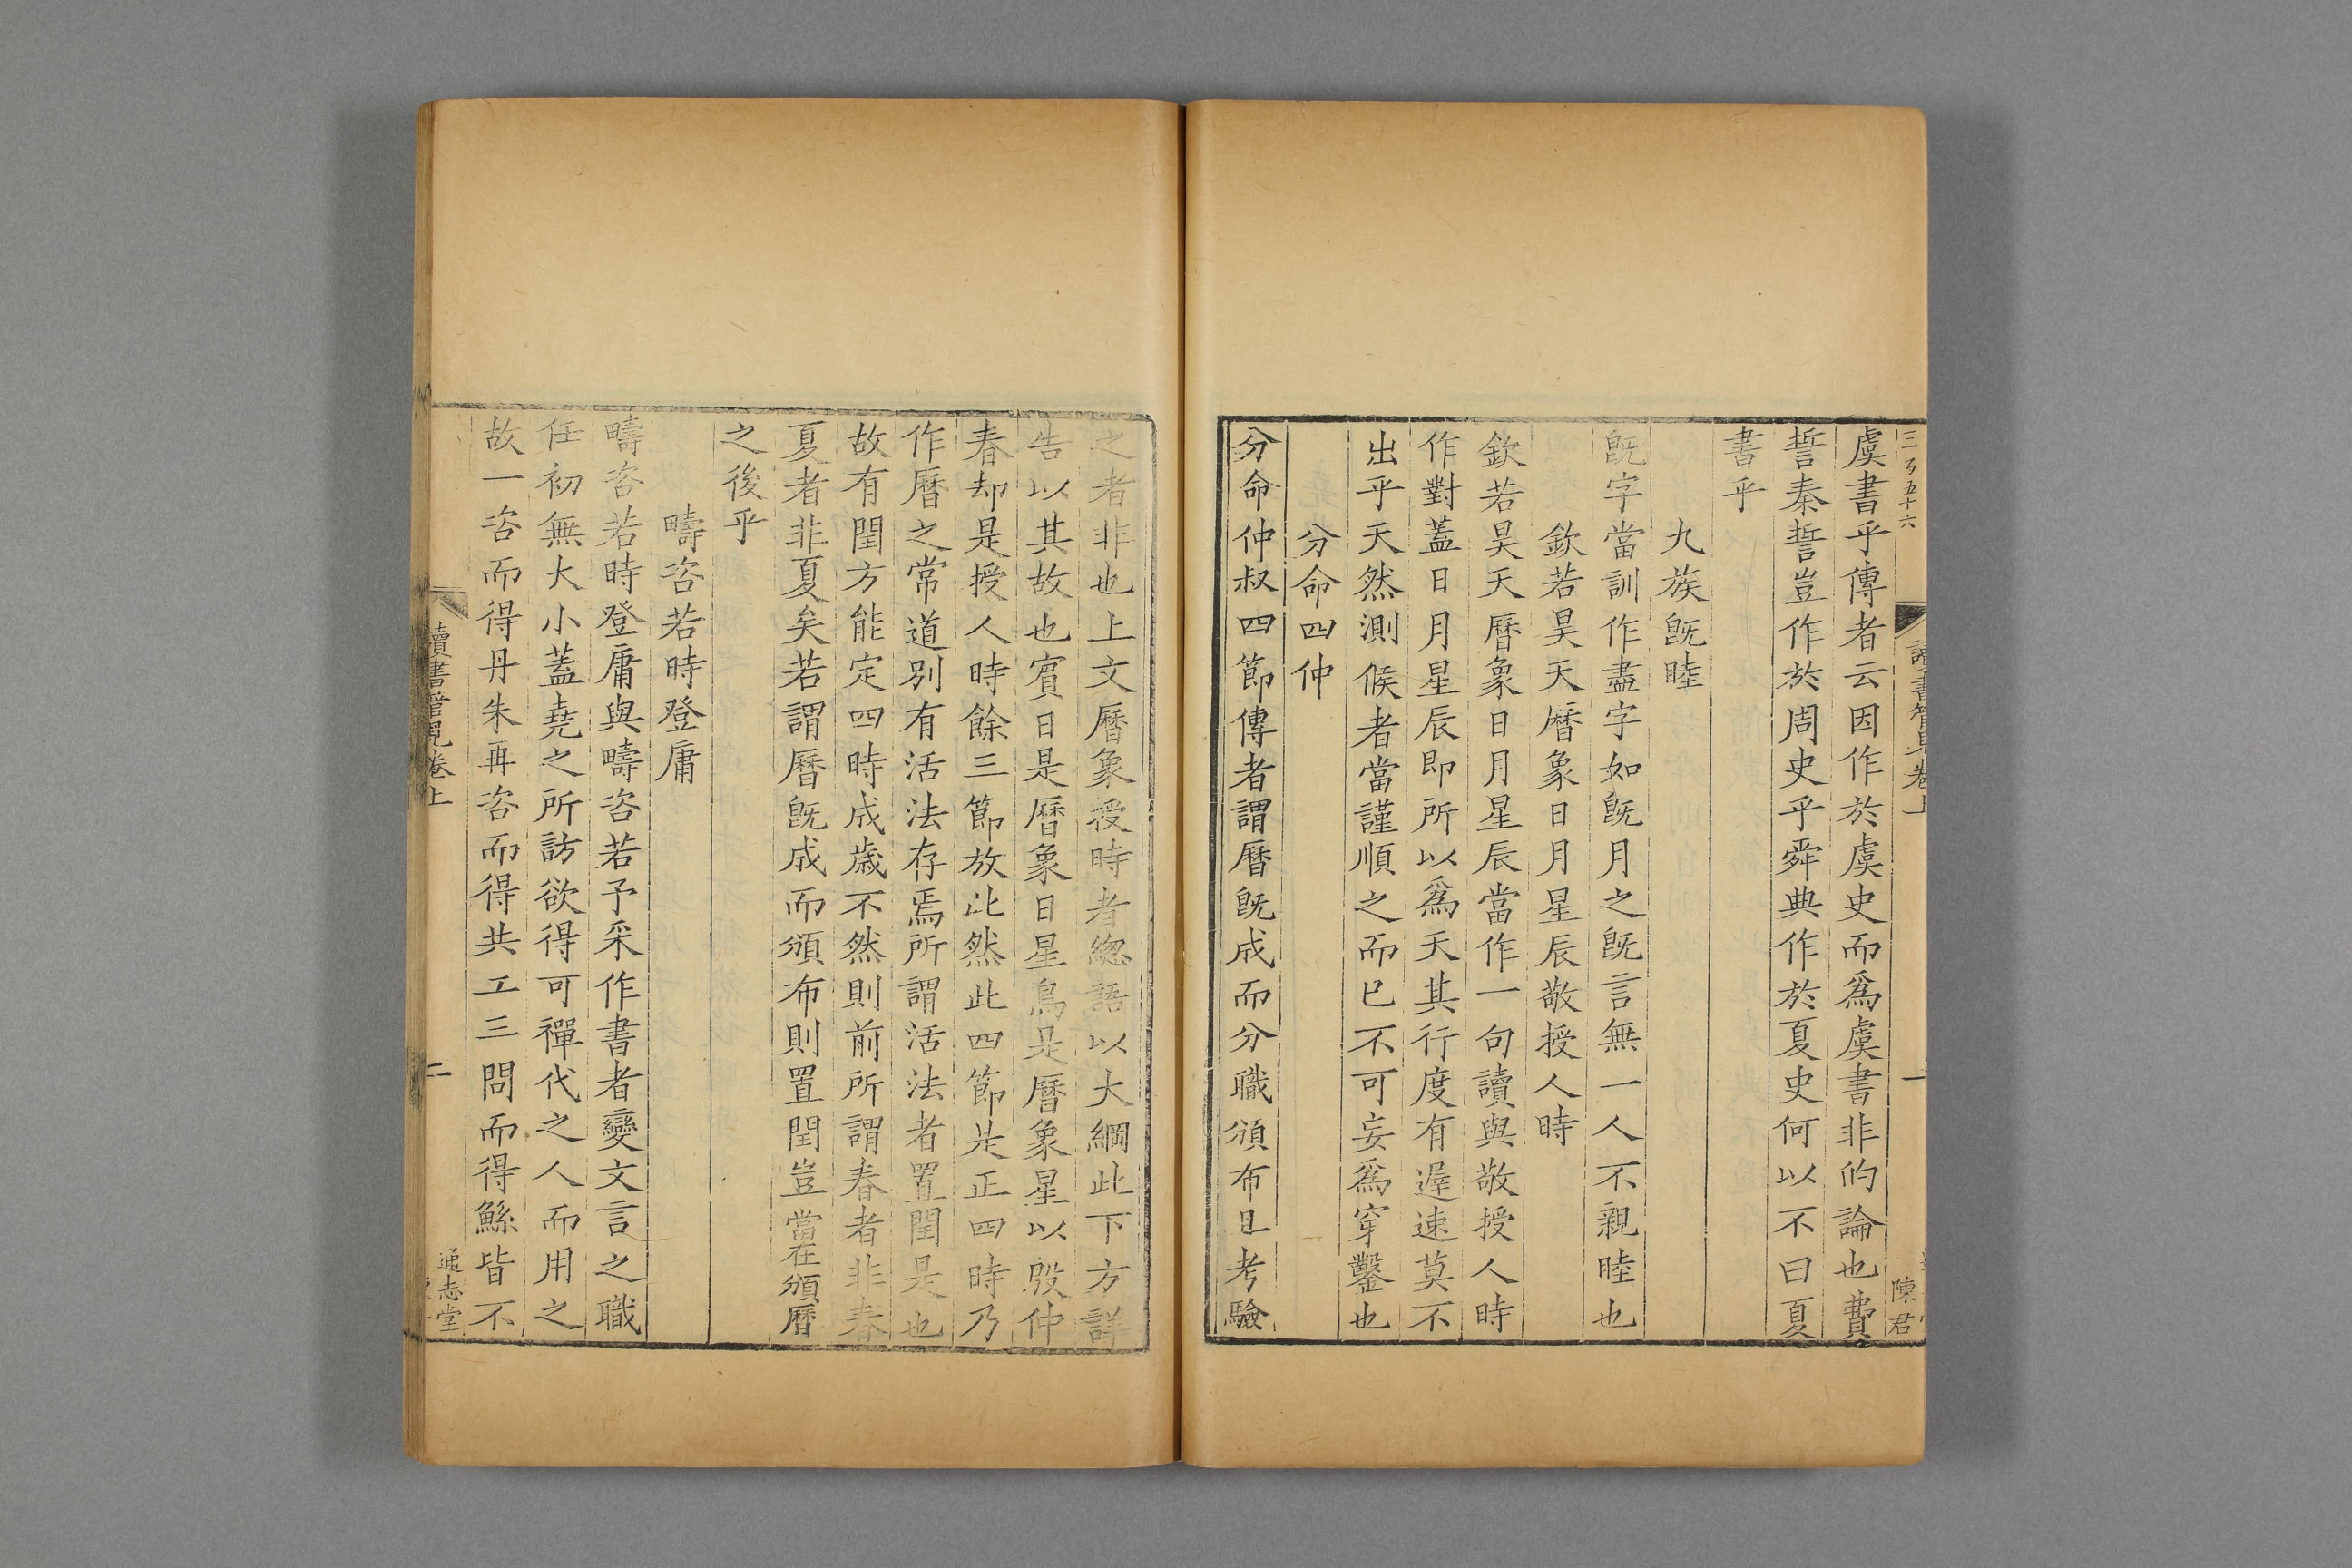 三百五十六
讀書管見卷上
一
陳君
虞書乎傳者云因作於虞史而爲虞書非的論也費
誓秦誓豈作於周史乎舜典作於夏史何以不曰夏
書乎
九族旣睦
旣字當訓作盡字如旣月之旣言無一人不親睦也
欽若昊天曆象日月星辰敬授人時
欽若昊天曆象日月星辰當作一句讀與敬授人時
作對蓋日月星辰即所以爲天其行度有遲速莫不
出乎天然測候者當謹順之而已不可妄爲穿鑿也
分命四仲
分命仲叔四節傳者謂曆旣成而分職頒布且考驗
之者非也上文曆象授時者緫語以大綱此下方詳
告以其故也賓日是曆象日星鳥是曆象星以殷仲
春却是授人時餘三節放此然此四節是正四時乃
作曆之常道別有活法存焉所謂活法者置閏是也
故有閏方能定四時成歲不然則前所謂春者非春
夏者非夏矣若謂曆旣成而頒布則置閏豈當在頒曆
之後乎
疇咨若時登庸
疇咨若時登庸與疇咨若予采作書者變文言之職
任初無大小蓋堯之所訪欲得可禪代之人而用之
故一咨而得丹朱再咨而得共工三問而得鯀皆不
讀書管見卷上
二
通志堂